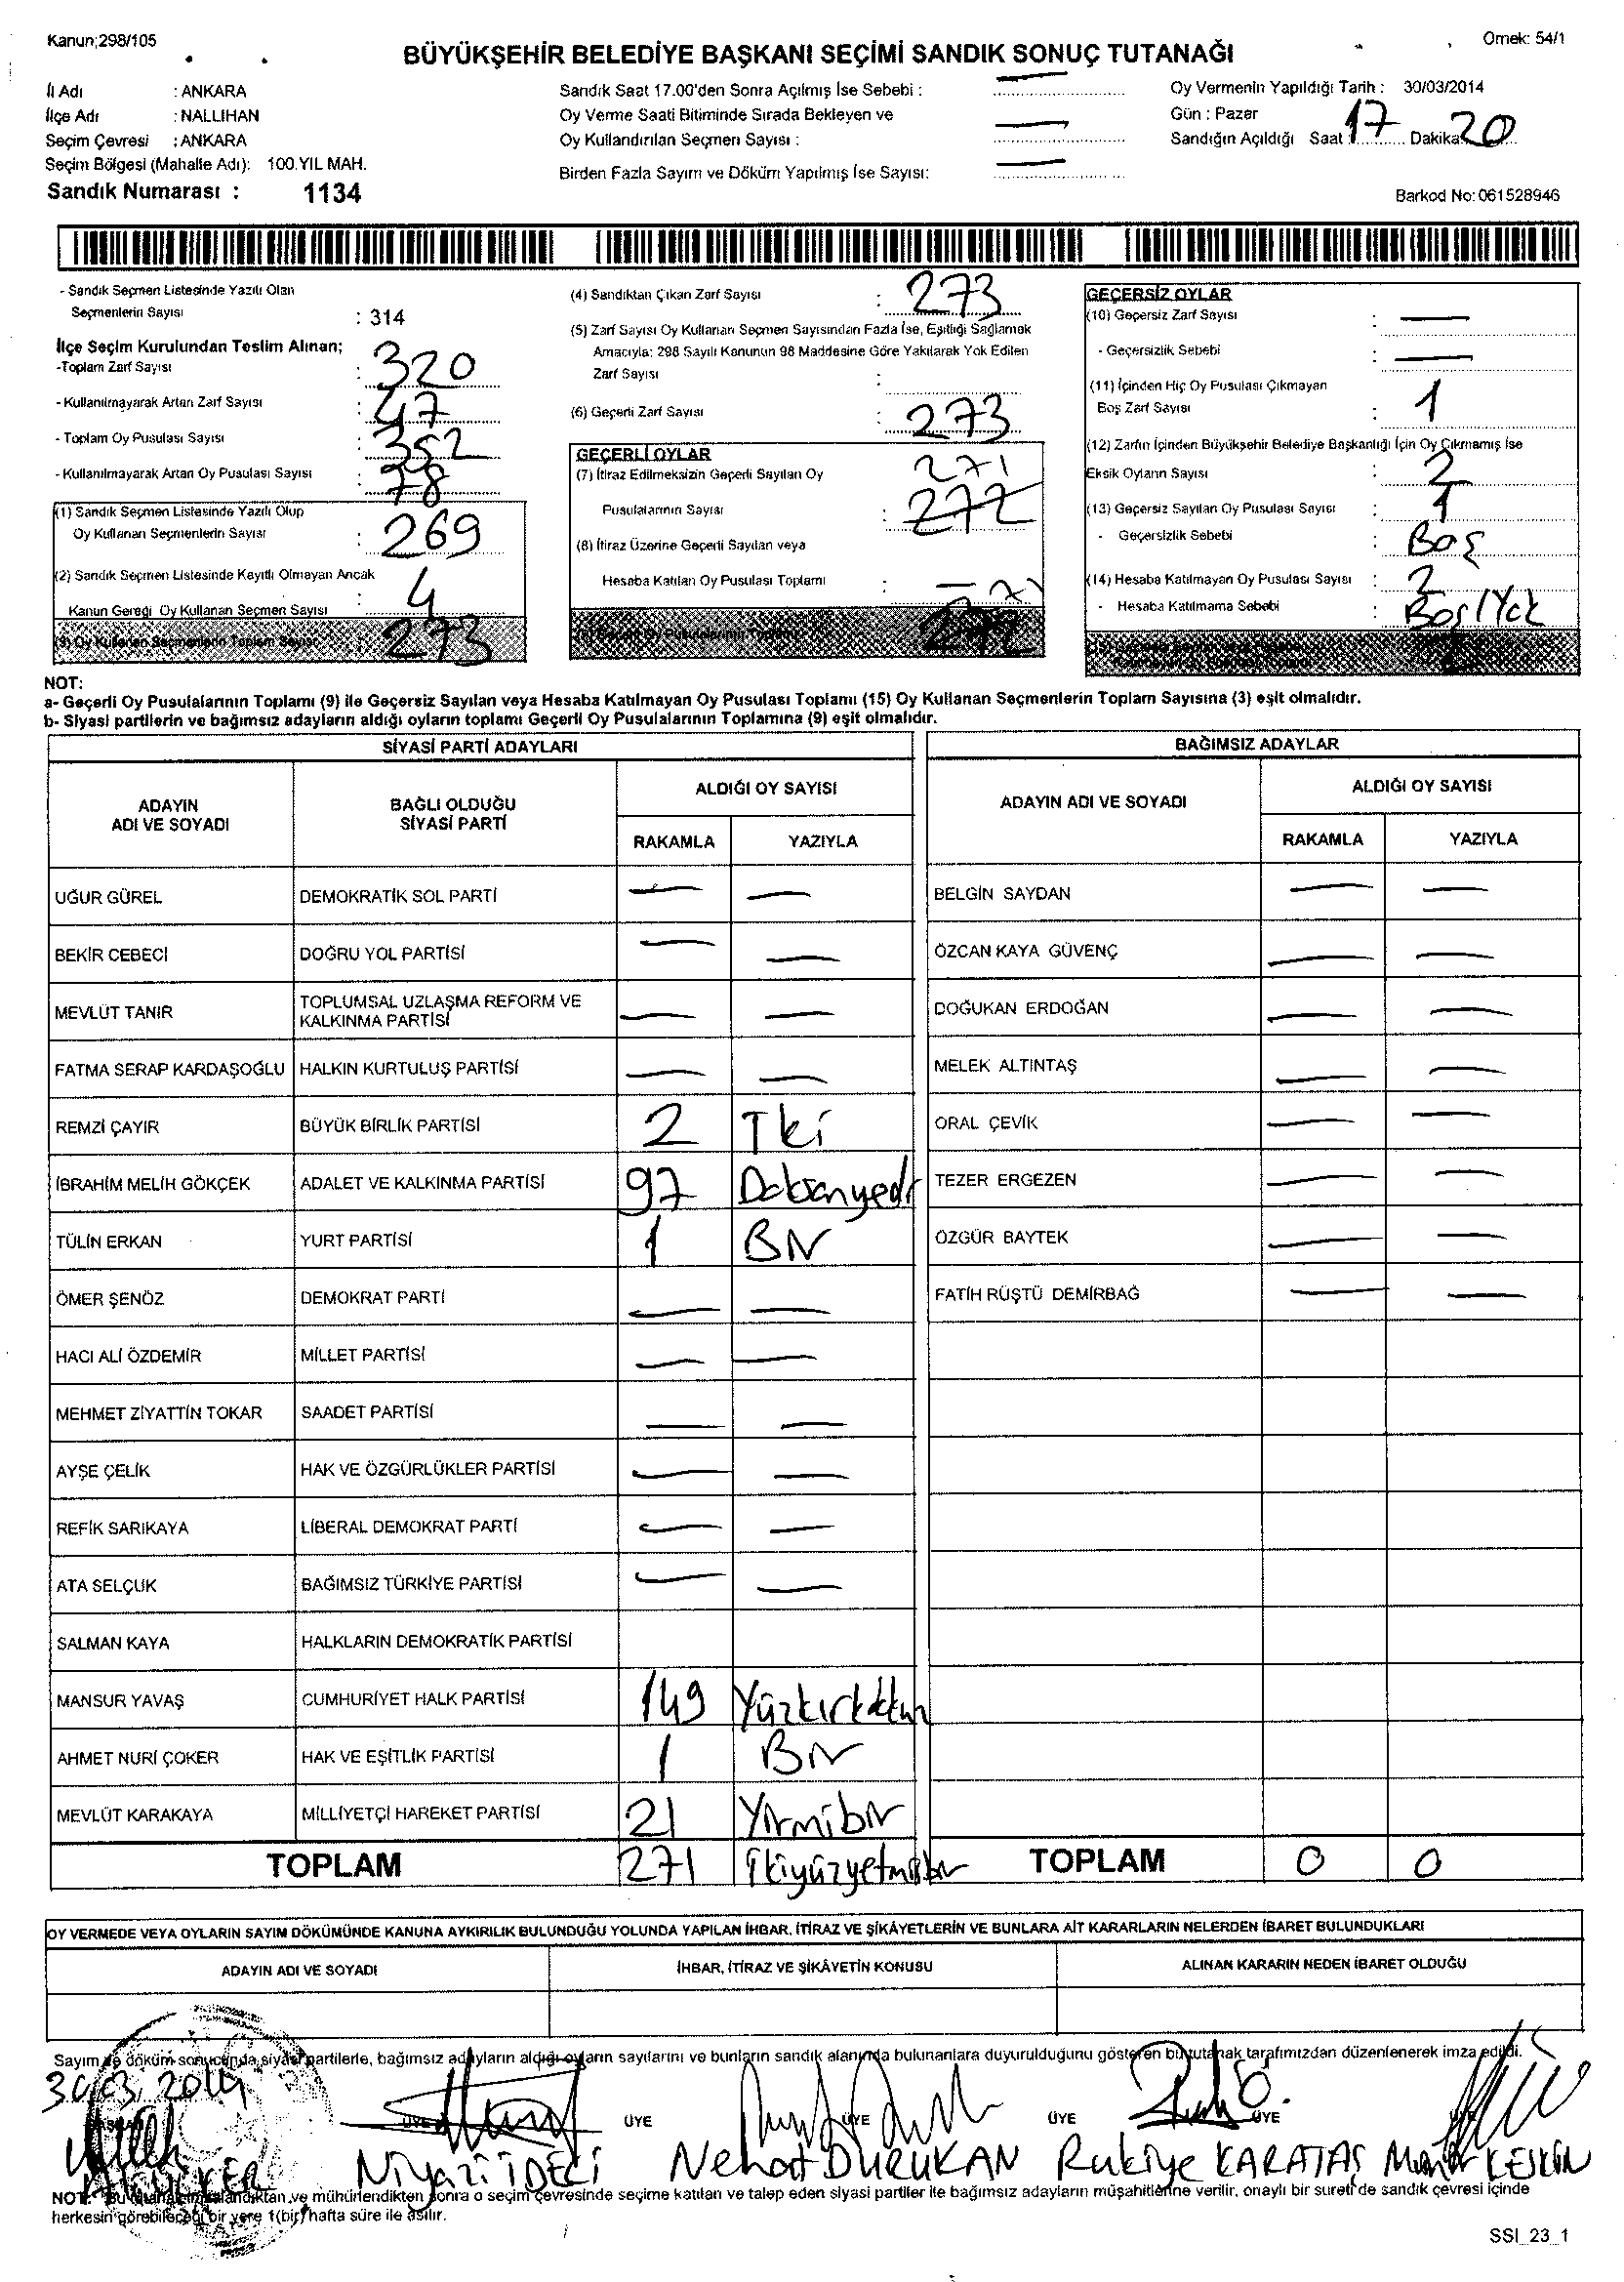 Kanun;298/105
Örnek: 54/1
BÜYÜKŞEHİR BELEDİYE BAŞKANI SEÇİMİ SANDIK SONUÇ TUTANAĞI
İl Adı : ANKARA
İlçe Adı : NALLIHAN
Seçim Çevresi : ANKARA
Seçim Bölgesi (Mahalle Adı): 100.YIL MAH.
Sandık Numarası : 1134
Sandık Saat 17.00'den Sonra Açılmış İse Sebebi : —
Oy Verme Saati Bitiminde Sırada Bekleyen ve
Oy Kullandırılan Seçmen Sayısı : —
Birden Fazla Sayım ve Döküm Yapılmış İse Sayısı: —
Oy Vermenin Yapıldığı Tarih : 30/03/2014
Gün : Pazar
Sandığın Açıldığı Saat 17 Dakika 20
Barkod No: 061528946
- Sandık Seçmen Listesinde Yazılı Olan
Seçmenlerin Sayısı : 314
İlçe Seçim Kurulundan Teslim Alınan;
-Toplam Zarf Sayısı : 320
- Kullanılmayarak Artan Zarf Sayısı : 47
- Toplam Oy Pusulası Sayısı : 352
- Kullanılmayarak Artan Oy Pusulası Sayısı : 78
(1) Sandık Seçmen Listesinde Yazılı Olup
Oy Kullanan Seçmenlerin Sayısı : 269
(2) Sandık Seçmen Listesinde Kayıtlı Olmayan Ancak
Kanun Gereği Oy Kullanan Seçmen Sayısı : 4
(3) Oy Kullanan Seçmenlerin Toplam Sayısı : 273
(4) Sandıktan Çıkan Zarf Sayısı : 273
(5) Zarf Sayısı Oy Kullanan Seçmen Sayısından Fazla İse, Eşitliği Sağlamak
Amacıyla; 298 Sayılı Kanunun 98 Maddesine Göre Yakılarak Yok Edilen
Zarf Sayısı :
(6) Geçerli Zarf Sayısı : 273
GEÇERLİ OYLAR
(7) İtiraz Edilmeksizin Geçerli Sayılan Oy 271
Pusulalarının Sayısı : 272
(8) İtiraz Üzerine Geçerli Sayılan veya
Hesaba Katılan Oy Pusulası Toplamı : —
(9) Geçerli Oy Pusulalarının Toplamı 272
GEÇERSİZ OYLAR
(10) Geçersiz Zarf Sayısı : —
- Geçersizlik Sebebi : —
(11) İçinden Hiç Oy Pusulası Çıkmayan
Boş Zarf Sayısı : 1
(12) Zarfın İçinden Büyükşehir Belediye Başkanlığı İçin Oy Çıkmamış İse
Eksik Oyların Sayısı : 2
(13) Geçersiz Sayılan Oy Pusulası Sayısı : 1
- Geçersizlik Sebebi : Boş
(14) Hesaba Katılmayan Oy Pusulası Sayısı : 2
- Hesaba Katılmama Sebebi : Boş/Yok
NOT:
a- Geçerli Oy Pusulalarının Toplamı (9) ile Geçersiz Sayılan veya Hesaba Katılmayan Oy Pusulası Toplamı (15) Oy Kullanan Seçmenlerin Toplam Sayısına (3) eşit olmalıdır.
b- Siyasi partilerin ve bağımsız adayların aldığı oyların toplamı Geçerli Oy Pusulalarının Toplamına (9) eşit olmalıdır.
SİYASİ PARTİ ADAYLARI
ADAYIN ADI VE SOYADI BAĞLI OLDUĞU SİYASİ PARTİ ALDIĞI OY SAYISI
RAKAMLA YAZIYLA
UĞUR GÜREL DEMOKRATİK SOL PARTİ — —
BEKİR CEBECİ DOĞRU YOL PARTİSİ — —
MEVLÜT TANIR TOPLUMSAL UZLAŞMA REFORM VE KALKINMA PARTİSİ — —
FATMA SERAP KARDAŞOĞLU HALKIN KURTULUŞ PARTİSİ — —
REMZİ ÇAYIR BÜYÜK BİRLİK PARTİSİ 2 İki
İBRAHİM MELİH GÖKÇEK ADALET VE KALKINMA PARTİSİ 97 Doksanyedi
TÜLİN ERKAN YURT PARTİSİ 1 Bir
ÖMER ŞENÖZ DEMOKRAT PARTİ — —
HACI ALİ ÖZDEMİR MİLLET PARTİSİ — —
MEHMET ZİYATTİN TOKAR SAADET PARTİSİ — —
AYŞE ÇELİK HAK VE ÖZGÜRLÜKLER PARTİSİ — —
REFİK SARIKAYA LİBERAL DEMOKRAT PARTİ — —
ATA SELÇUK BAĞIMSIZ TÜRKİYE PARTİSİ — —
SALMAN KAYA HALKLARIN DEMOKRATİK PARTİSİ
MANSUR YAVAŞ CUMHURİYET HALK PARTİSİ 149 Yüzkırkdokuz
AHMET NURİ ÇOKER HAK VE EŞİTLİK PARTİSİ 1 Bir
MEVLÜT KARAKAYA MİLLİYETÇİ HAREKET PARTİSİ 21 Yirmibir
TOPLAM 271 İkiyüzyetmişbir
BAĞIMSIZ ADAYLAR
ADAYIN ADI VE SOYADI ALDIĞI OY SAYISI
RAKAMLA YAZIYLA
BELGİN SAYDAN — —
ÖZCAN KAYA GÜVENÇ — —
DOĞUKAN ERDOĞAN — —
MELEK ALTINTAŞ — —
ORAL ÇEVİK — —
TEZER ERGEZEN — —
ÖZGÜR BAYTEK — —
FATİH RÜŞTÜ DEMİRBAĞ — —
TOPLAM 0 0
OY VERMEDE VEYA OYLARIN SAYIM DÖKÜMÜNDE KANUNA AYKIRILIK BULUNDUĞU YOLUNDA YAPILAN İHBAR, İTİRAZ VE ŞİKÂYETLERİN VE BUNLARA AİT KARARLARIN NELERDEN İBARET BULUNDUKLARI
ADAYIN ADI VE SOYADI İHBAR, İTİRAZ VE ŞİKÂYETİN KONUSU ALINAN KARARIN NEDEN İBARET OLDUĞU
Sayım ve döküm sonucunda siyasi partilerle, bağımsız adayların aldığı oyların sayılarını ve bunların sandık alanında bulunanlara duyurulduğunu gösteren bu tutanak tarafımızdan düzenlenerek imza edildi.
30/03/2014
ÜYE ÜYE ÜYE ÜYE ÜYE
Niyazi İDECİ Nehat DURUKAN Rukiye KARATAŞ KESKİN
NOT: Bu tutanak imzalandıktan ve mühürlendikten sonra o seçim çevresinde seçime katılan ve talep eden siyasi partiler ile bağımsız adayların müşahitlerine verilir, onaylı bir sureti de sandık çevresi içinde
herkesin görebileceği bir yere 1(bir) hafta süre ile asılır.
SSI_23_1